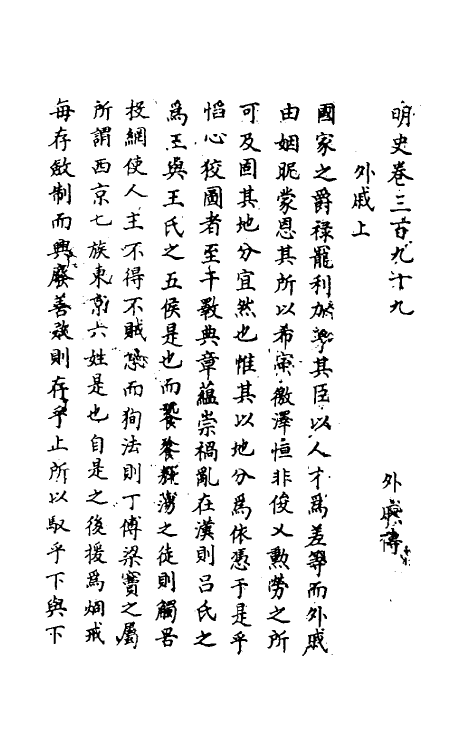 明史卷三百九十九
外戚傳
外戚上
國家之爵祿寵利加於其臣以人才爲差等而外戚
由姻昵蒙恩其所以希寵徼澤恒非俊乂勲勞之所
可及固其地分宜然也惟其以地分爲依憑于是乎
慆心狡圖者至干斁典章蘊崇禍亂在漢則呂氏之
爲王與王氏之五侯是也而饕餮輕蕩之徒則觸罟
投網使人主不得不賊恩而狥法則丁傅梁竇之屬
所謂西京七族東京六姓是也自是之後援爲炯戒
每存斂制而興廢善敗則存乎上所以馭乎下與下